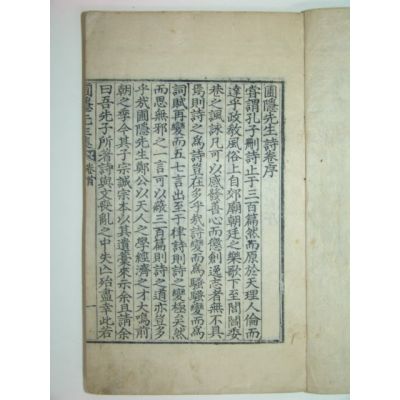 圃隱先生詩卷序
嘗謂孔子刪詩止于三百篇然而原於天理人倫而
達乎政敎風俗上自郊廟朝廷之樂歌下至閭閻委
巷之諷詠凡可以感發善心而懲創逸志者無不具
焉則詩之爲詩豈在多乎哉詩變而爲騷騷變而爲
詞賦再變而五七言出至于律詩則詩之變極矣然
而思無邪之一言可以蔽三百篇則詩之道亦豈多
乎哉圃隱先生鄭公以天人之學經濟之才大鳴前
朝之季今其子宗誠宗本以其遺藁來示余且請余
曰吾先子所著詩與文喪亂之中失亡殆盡幸此若
圃隱先生集 卷首 一